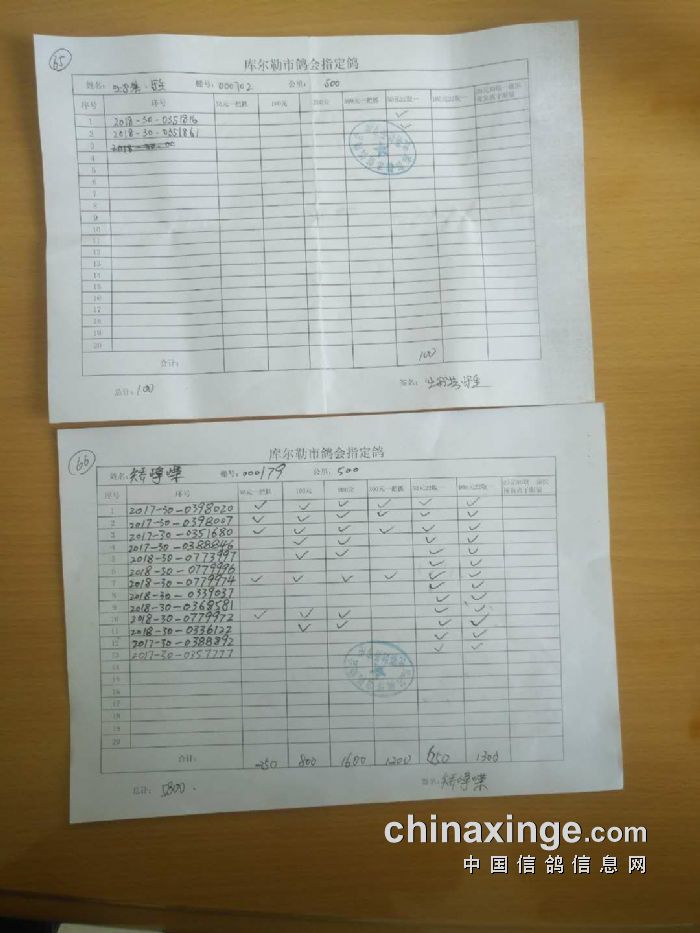 65
库尔勒市鸽会指定鸽
姓名: 棚号: 000702 公里: 500
序号 序号 50元一把抓 100元 200元
1 2018-30-0351816 ✓
2 2018-30-0351861 ✓
3
4
5
6
7
8
9
10
11
12
13
14
15
16
17
18
19
20
合计: 100
总计: 100 签名:
66
库尔勒市鸽会指定鸽
姓名: 棚号: 000179 公里: 500
序号 序号 50元一把抓 100元
1 2017-30-0398020 ✓ ✓ ✓ ✓ ✓ ✓
2 2017-30-0398007 ✓ ✓ ✓ ✓ ✓ ✓
3 2017-30-0351680 ✓ ✓ ✓ ✓ ✓ ✓
4 2017-30-0388846 ✓ ✓ ✓ ✓
5 2018-30-0773997 ✓ ✓ ✓ ✓
6 2018-30-0779996 ✓ ✓
7 2018-30-0779974 ✓ ✓ ✓ ✓ ✓ ✓
8 2018-30-0339037 ✓ ✓
9 2018-30-0368581 ✓ ✓
10 2018-30-0779972 ✓ ✓ ✓ ✓ ✓
11 2018-30-0336122 ✓ ✓ ✓ ✓
12 2017-30-0388892 ✓ ✓
13 2017-30-0357777 ✓ ✓
14
15
16
17
18
19
20
合计: 250 800 1600 1200 650 1300
总计: 5800. 签名:
chinaxinge.com
中国信鸽信息网